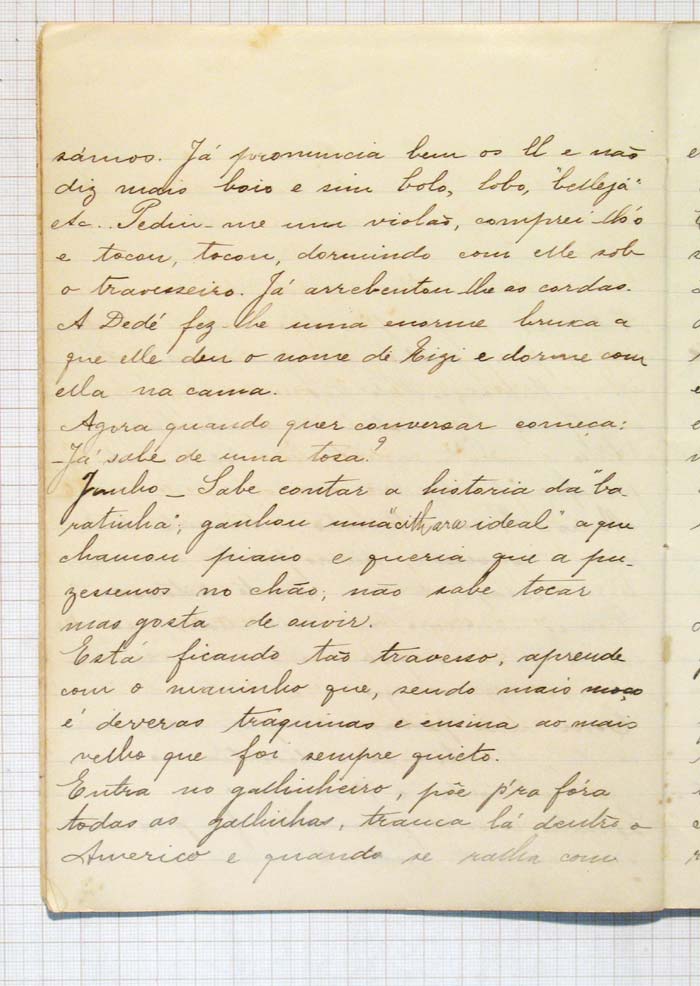 sámos. Já pronuncia bem os ll e não
diz mais boio e sim bolo, lobo, "bellejá"
etc.. Pediu-me um violão, comprei-lh'o
e tocou, tocou, dormindo com elle sob
o travesseiro. Já arrebentou-lhe as cordas.
A Dedé fez-lhe uma enorme bruxa a
que elle deu o nome de Gigi e dorme com
ella na cama.
Agora quando quer conversar começa:
-Já sabe de uma tosa?
Junho - Sabe contar a historia da "ba-
ratinha"; ganhou uma "cithara ideal" a que
chamou piano e queria que a pu-
zessemos no chão; não sabe tocar
mas gosta de ouvir.
Está ficando tão travesso, aprende
com o maninho que, sendo mais moço
é deveras traquinas e ensina ao mais
velho que foi sempre quieto.
Entra no gallinheiro, põe p'ra fóra
todas as gallinhas, tranca lá dentro o
Americo e quando se ralha com